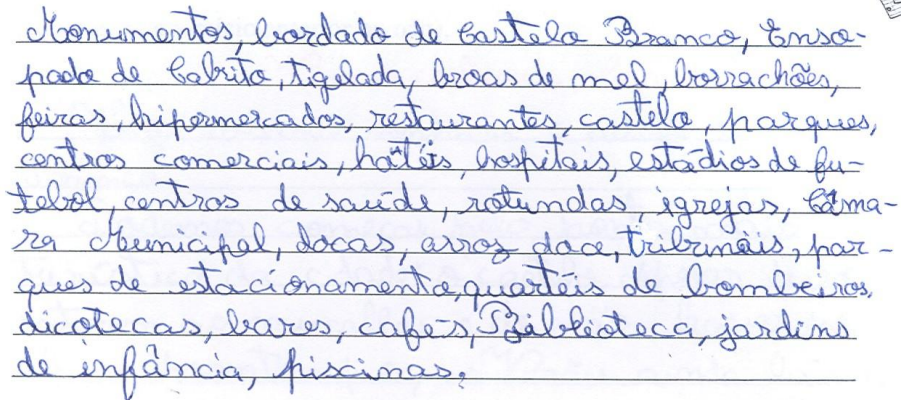 Monumentos, bordado de Castelo Branco, Enso-
pado de Cabrito, tigelada, broas de mel, borrachões,
feiras, hipermercados, restaurantes, castelo, parques,
centros comerciais, hotéis, hospitais, estádios de fu-
tebol, centros de saúde, rotundas, igrejas, Câma-
ra Municipal, docas, arroz doce, tribunais, par-
ques de estacionamento, quartéis de bombeiros,
dicotecas, bares, cafés, Biblioteca, jardins
de infância, piscinas.